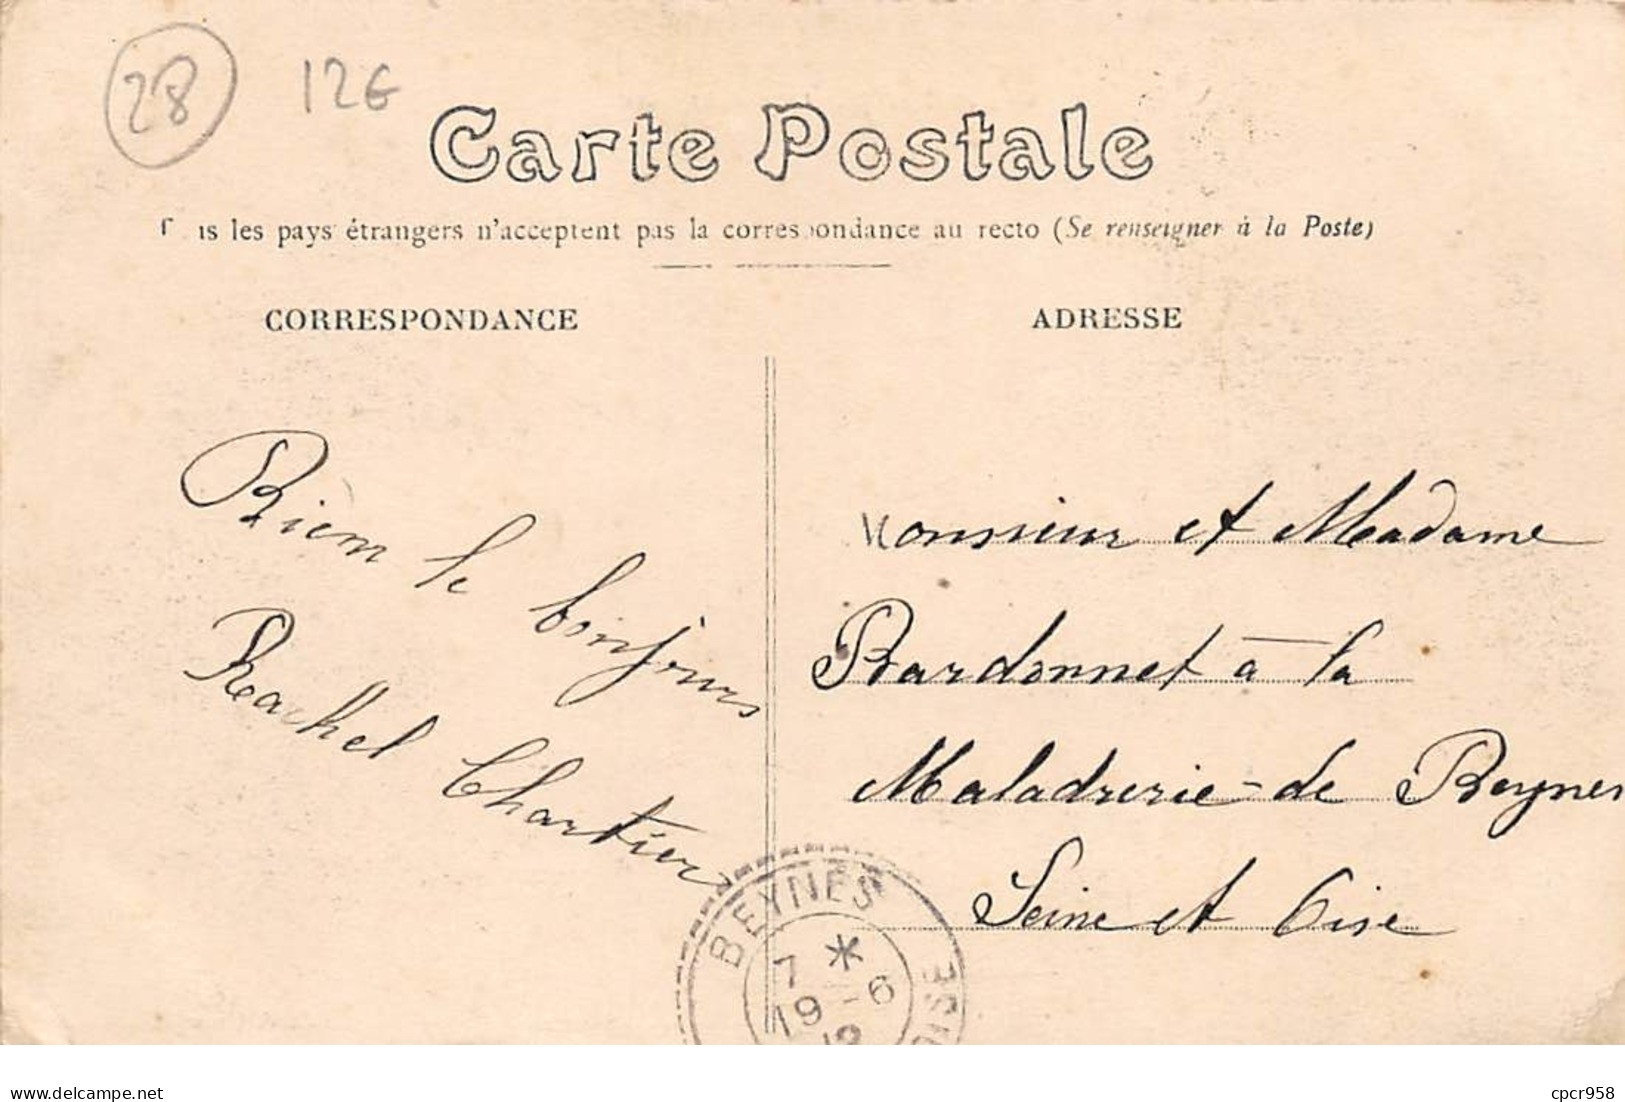 28
12€
Carte Postale
les pays étrangers n'acceptent pas la correspondance au recto (Se renseigner à la Poste)
CORRESPONDANCE
ADRESSE
Bièm le bonjours
Rachel Chartier
Monsieur et Madame
Bardonnet à la
Maladrerie-de Beynes
Seine et Oise
BEYNES
7 *
19 - 6
12
OISE
delcampe.net
cpcr958